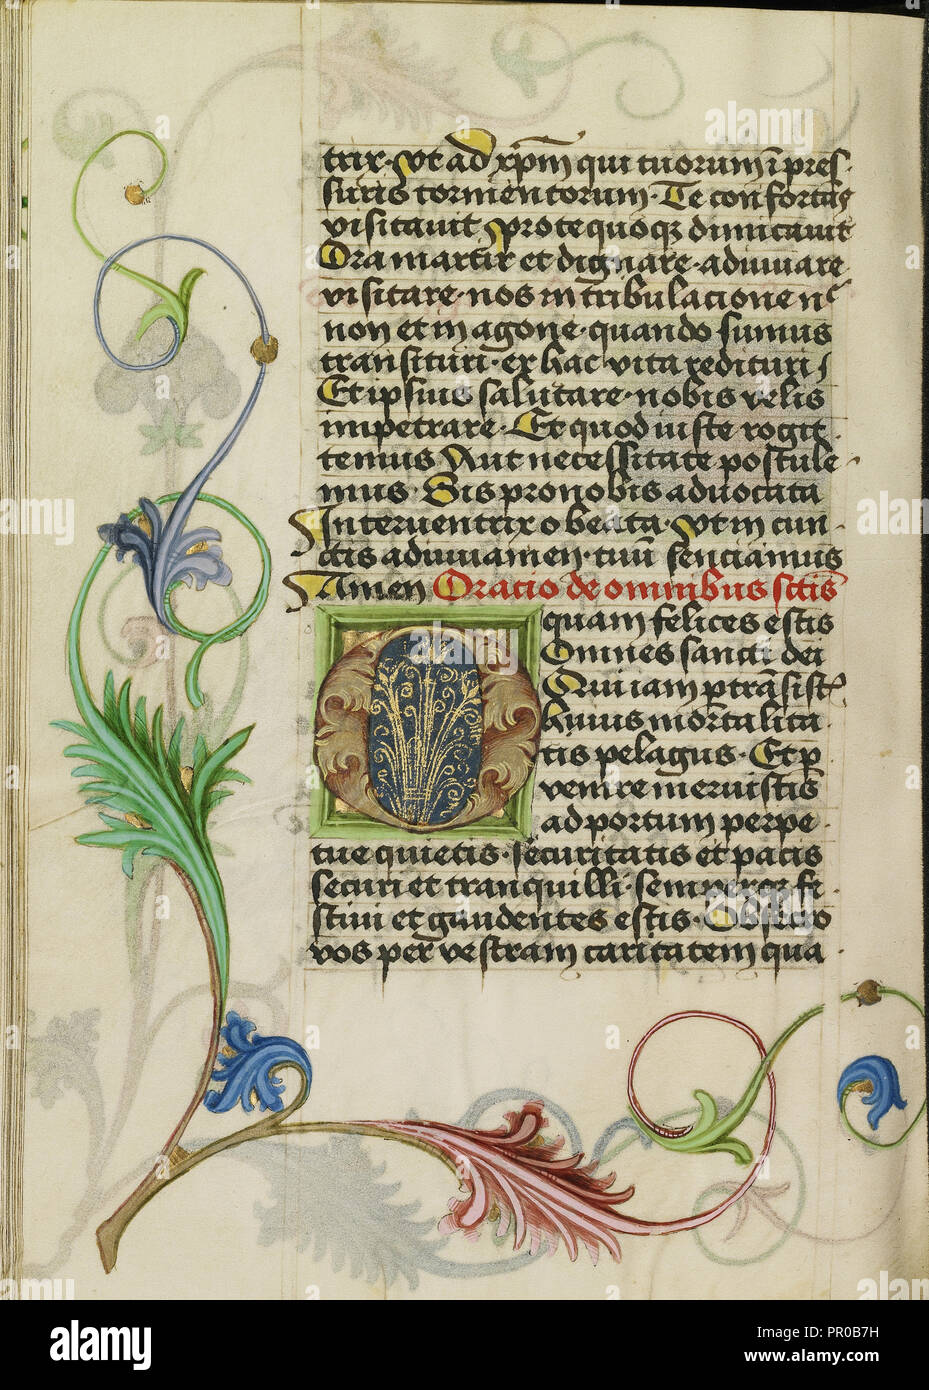 trix. Vt ad xp̄m qui tuorum ī pres
suris tormentorum. Te confortās
visitauit Pro te quoqꝫ dimicauit
Ora martir et dignare. adiuuare
visitare. nos in tribulacione nr̄
non et in agone. quando sumus
transituri. ex hac vita redituri /
Et ipsius salutare. nobis velis
impetrare. Et quod iuste rogit
temus Aut necessitate postule
mus. Sis pro nobis aduocata
Interuentrix o beata. Vt in cun
ctis adiuuamen. tuū senciamus
Amen Oracio de omnibus sctīs
O quam felices estis
Omnes sancti dei
Qui iam ptrāsist᷒
huius mortalita
tis pelagus. Et p
venire meruistis
ad portum perpe
tue quietis. securitatis et pacis
securi et tranquilli. semperqꝫ fe
stiui et gaudentes estis. Obsecro
vos per vestram caritatem qua
alamy
alamy
Image ID: PR0B7H
www.alamy.com